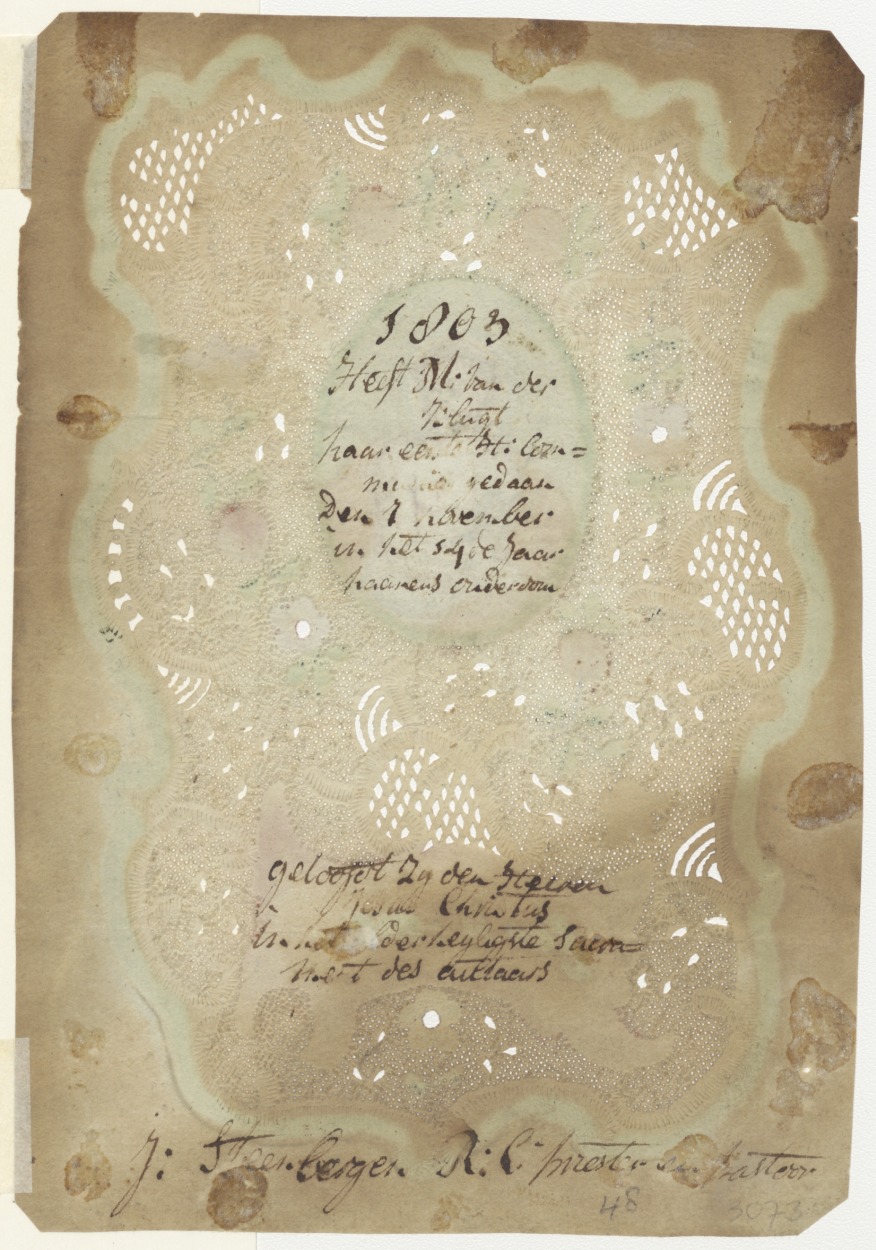 1803
Heeft M: van der
Vlugt
haar eerste H: Com=
munie gedaan
Den 7 November
in het 14de Jaar
haarens ouderdom
gelooft Zy den Heeren
Jesus Christus
In het Alderheyligste Sacra=
ment des autaars
J: Steenbergen R: C: priester en pastoor
48 3073